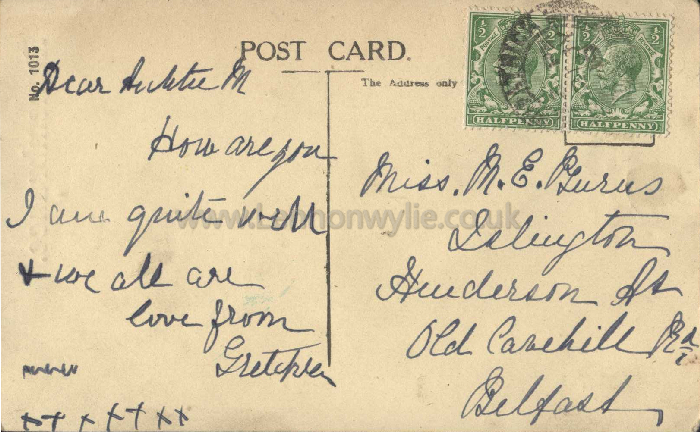 No. 1013
POST CARD.
The Address only
½ ½
HALFPENNY
½ ½
HALFPENNY
Dear Auntie M
How are you
I am quite well
+ we all are
love from
Gretchen
xx x x x xx
Miss. M. E. Burns
Islington
Henderson Av
Old Cavehill Rd
Belfast
www.Lennonwylie.co.uk